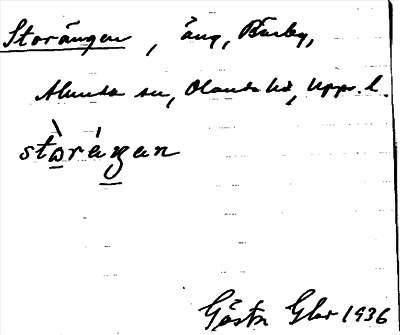 Storängen, äng, Barby,
Alunda sn, Olands hd, Upps. l.
stòrángan
Gösta Gbr 1936